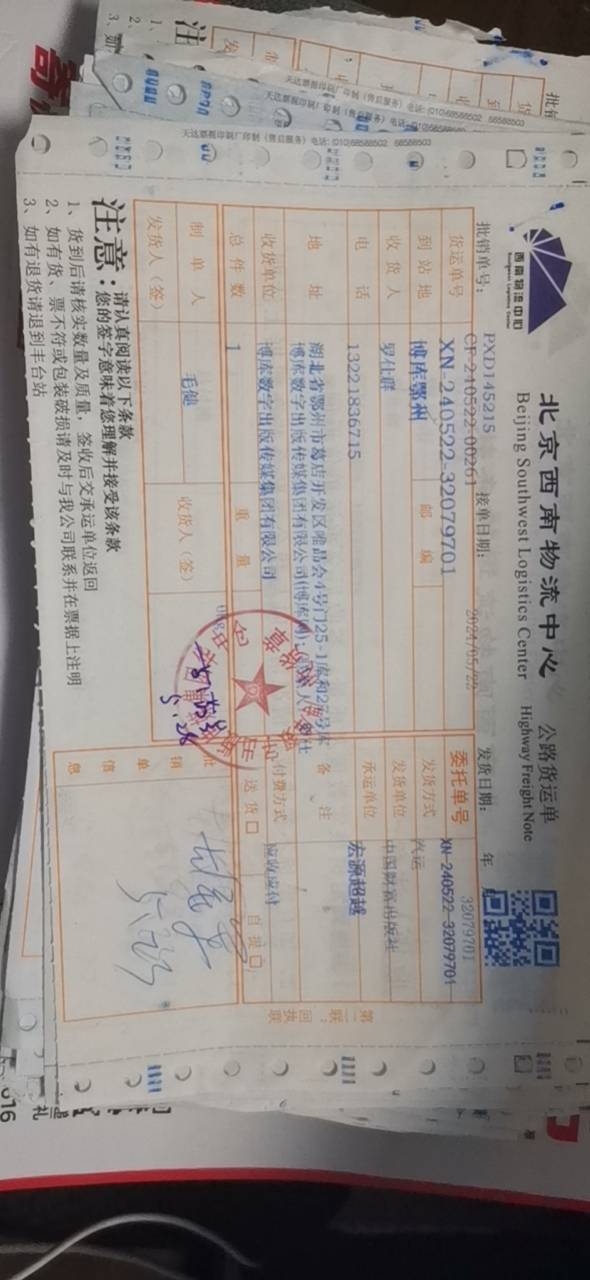 北京西南物流中心 公路货运单
Beijing Southwest Logistics Center Highway Freight Note
西南物流中心
批销单号: PXD145215 接单日期: 2024/05/22 发货日期: 年
CF-240522-00261 32079701
货运单号 XN-240522-32079701 委托单号 XN-240522-32079701
到站地 博库鄂州 邮编 发货方式 汽运
收货人 罗仕群 发货单位 中国财富出版社
电话 13221836715 承运单位 宏源超越
地址 湖北省鄂州市葛店开发区唯品会4号门25-1库和27号库 备注
博库数字出版传媒集团有限公司(博库
收货单位 博库数字出版传媒集团有限公司 付费方式 应收应付
总件数 1 重量 送货 自提
制单人 毛健 收货人(签) 批销单信息
发货人(签)
5.28
第二联:回执联
注意:
请认真阅读以下条款
您的签字意味着您理解并接受该条款
1、货到后请核实数量及质量,签收后交承运单位返回
2、如有货、票不符或包装破损请及时与我公司联系并在票据上注明
3、如有退货请退到丰台站
天达票据印刷厂印制(售后服务)电话:(010)68588502 68588503